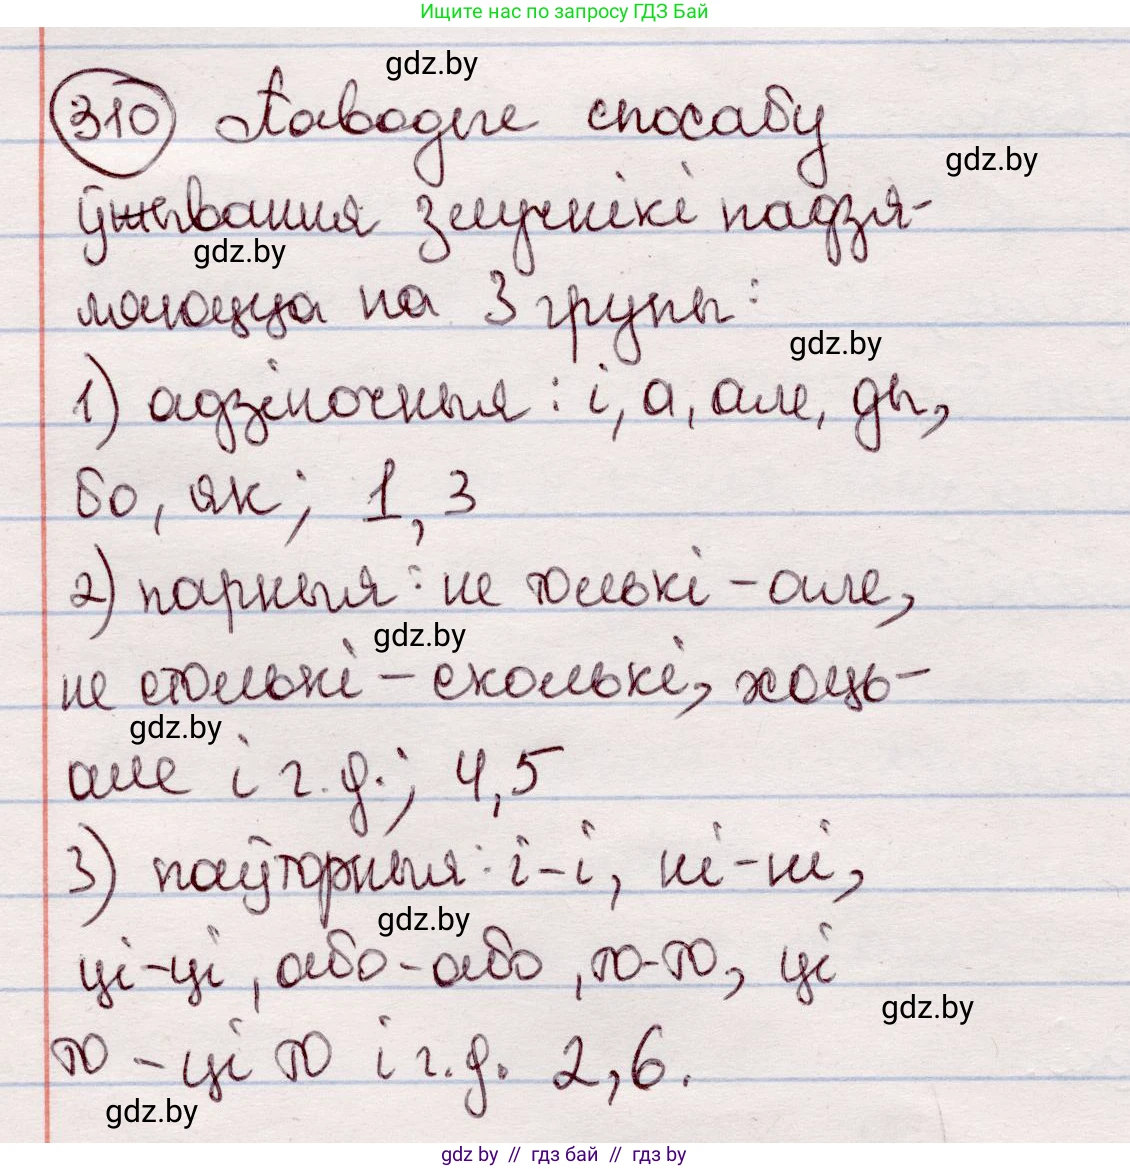 Ищите нас по запросу ГДЗ Бай
gdz.by
310 Паводле спосабу
gdz.by
ўжывання злучнікі падзя-
gdz.by
ляюцца на 3 групы:
gdz.by
1) адзіночныя: і, а, але, ды,
бо, як; 1, 3
2) парныя: не толькі – але,
gdz.by
не столькі – сколькі, хоць –
gdz.by
але і г. д.; 4, 5
3) паўторныя: і-і, ні-ні,
gdz.by
ці-ці, або-або, то-то, ці
gdz.by
то – ці то і г. д. 2, 6.
gdz.by
gdz by // гдз бай // гдз by